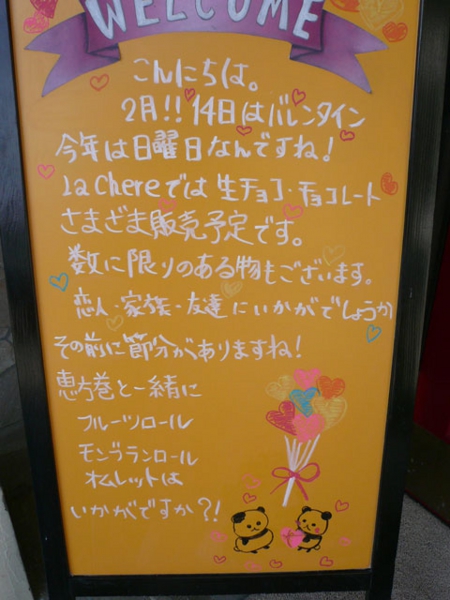 WELCOME
こんにちは。
2月!! 14日はバレンタイン
今年は日曜日なんですね!
La chereでは 生チョコ・チョコレート
さまざま販売予定です。
数に限りのある物もございます。
恋人・家族・友達にいかがでしょうか
その前に節分がありますね!
恵方巻と一緒に
フルーツロール
モンブランロール
オムレットは
いかがですか?!